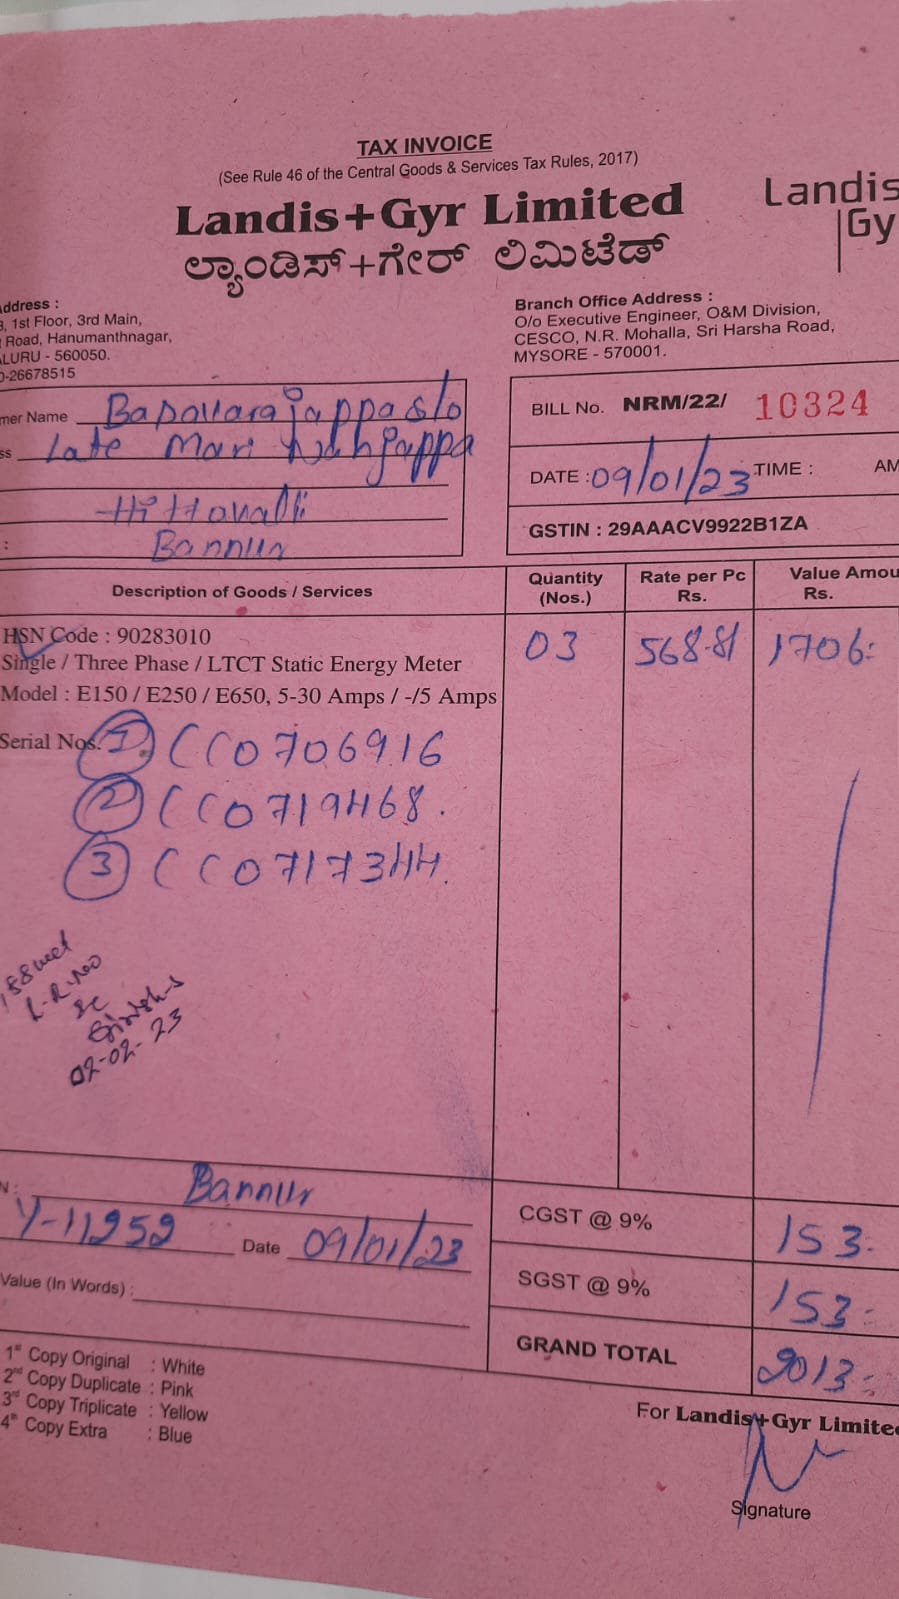 TAX INVOICE
(See Rule 46 of the Central Goods & Services Tax Rules, 2017)
Landis+Gyr Limited
ಲ್ಯಾಂಡಿಸ್+ಗೇರ್ ಲಿಮಿಟೆಡ್
Landis
Gy
ddress :
, 1st Floor, 3rd Main,
Road, Hanumanthnagar,
LURU - 560050.
-26678515
Branch Office Address :
O/o Executive Engineer, O&M Division,
CESCO, N.R. Mohalla, Sri Harsha Road,
MYSORE - 570001.
mer Name Basavarajappa s/o
ss Late Mari
Bannur
BILL No. NRM/22/ 10324
DATE : 09/01/23 TIME : AM
GSTIN : 29AAACV9922B1ZA
Description of Goods / Services
Quantity (Nos.)
Rate per Pc Rs.
Value Amou Rs.
HSN Code : 90283010
03 568.81 1706=
Single / Three Phase / LTCT Static Energy Meter
Model : E150 / E250 / E650, 5-30 Amps / -/5 Amps
Serial Nos. 1) CC0706916
2 CC0719468.
3 CC0717344.
02-02-23
N : Bannur
Y-11252 Date 09/01/23
Value (In Words) :
CGST @ 9% 153=
SGST @ 9% 153=
GRAND TOTAL 2013=
1st Copy Original : White
2nd Copy Duplicate : Pink
3rd Copy Triplicate : Yellow
4th Copy Extra : Blue
For Landis+Gyr Limited
Signature